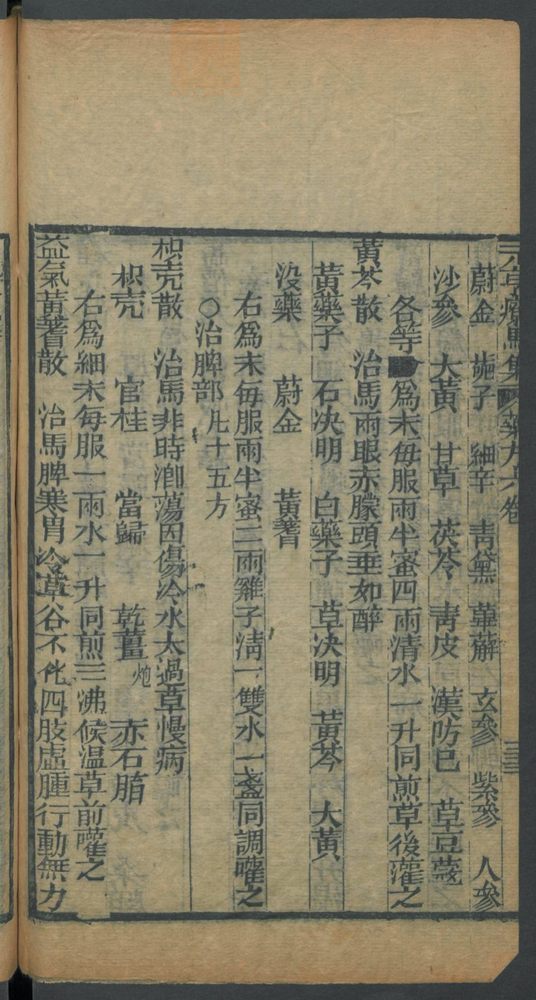 元亨療馬集 藥九六卷 三三
蔚金 梔子 細辛 靑黛 萆薢 玄參 紫參 人參
沙參 大黃 甘草 茯苓 靑皮 漢防巳 草豆蔻
各等 爲末每服兩半蜜四兩清水一升同煎草後灌之
黃芩散 治馬兩眼赤朦頭垂如醉
黃藥子 石决明 白藥子 草决明 黃芩 大黃
沒藥 蔚金 黃耆
右爲末每服兩半蜜二兩雞子淸一雙水一盞同調嚾之
○治脾部 凡十五方
枳壳散 治馬非時渲蕩因傷冷水太過草慢病
枳壳 官桂 當歸 乾薑炮 赤石脂
右爲細末每服一兩水一升同煎三沸候温草前嚾之
益氣黃耆散 治馬脾寒胃冷草谷不化四肢虛腫行動無力